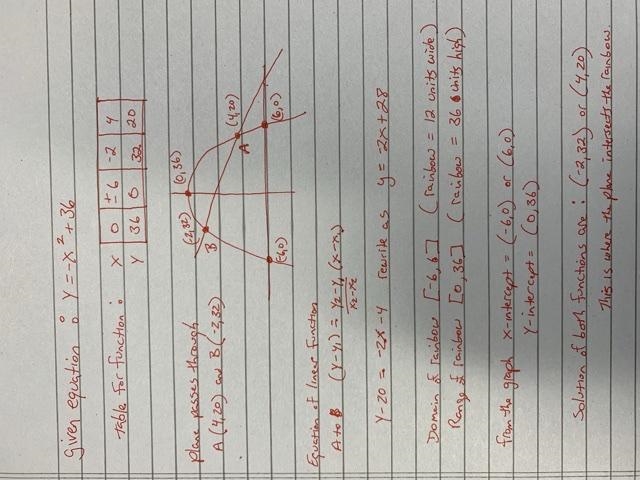 given equation : y = -x² + 36
table for function :
X 0 ±6 -2 4
Y 36 0 32 20
plane passes through
A (4,20) and B (-2,32)
(0,36)
(-2,32)
B
(4,20)
A
(-6,0)
(6,0)
Equation of linear function
A to B (y-y₁) = y₂-y₁ (x-x₁)
x₂-x₂
y-20 = -2x-4 rewrite as y = -2x+28
Domain of rainbow [-6,6] (rainbow = 12 units wide)
Range of rainbow [0,36] (rainbow = 36 units high)
from the graph x-intercept = (-6,0) or (6,0)
Y-intercept = (0,36)
Solution of both functions are : (-2,32) or (4,20)
This is where the plane intersects the rainbow.